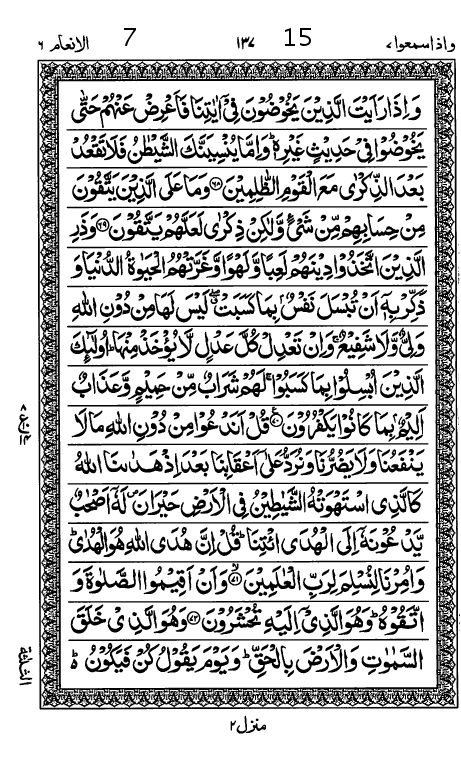 واذاسمعوا۷ 15 ۱۳۷ 7 الانعام ۶
وَاِذَا رَاَيْتَ الَّذِيْنَ يَخُوْضُوْنَ فِيْٓ اٰيٰتِنَا فَاَعْرِضْ عَنْهُمْ حَتّٰى
يَخُوْضُوْا فِيْ حَدِيْثٍ غَيْرِهٖ ؕ وَاِمَّا يُنْسِيَنَّكَ الشَّيْطٰنُ فَلَا تَقْعُدْ
بَعْدَ الذِّكْرٰى مَعَ الْقَوْمِ الظّٰلِمِيْنَ ۶۸ وَمَا عَلَى الَّذِيْنَ يَتَّقُوْنَ
مِنْ حِسَابِهِمْ مِّنْ شَيْءٍ وَّلٰكِنْ ذِكْرٰى لَعَلَّهُمْ يَتَّقُوْنَ ۶۹ وَذَرِ
الَّذِيْنَ اتَّخَذُوْا دِيْنَهُمْ لَعِبًا وَّلَهْوًا وَّغَرَّتْهُمُ الْحَيٰوةُ الدُّنْيَا وَ
ذَكِّرْ بِهٖٓ اَنْ تُبْسَلَ نَفْسٌۢ بِمَا كَسَبَتْ ۖ لَيْسَ لَهَا مِنْ دُوْنِ اللّٰهِ
وَلِيٌّ وَّلَا شَفِيْعٌ ۚ وَاِنْ تَعْدِلْ كُلَّ عَدْلٍ لَّا يُؤْخَذْ مِنْهَا ؕ اُولٰٓئِكَ
الَّذِيْنَ اُبْسِلُوْا بِمَا كَسَبُوْا ۚ لَهُمْ شَرَابٌ مِّنْ حَمِيْمٍ وَّعَذَابٌ
اَلِيْمٌۢ بِمَا كَانُوْا يَكْفُرُوْنَ ۷۰ قُلْ اَنَدْعُوْا مِنْ دُوْنِ اللّٰهِ مَا لَا
يَنْفَعُنَا وَلَا يَضُرُّنَا وَنُرَدُّ عَلٰٓى اَعْقَابِنَا بَعْدَ اِذْ هَدٰىنَا اللّٰهُ
كَالَّذِي اسْتَهْوَتْهُ الشَّيٰطِيْنُ فِي الْاَرْضِ حَيْرَانَ ۪ لَهٗٓ اَصْحٰبٌ
يَّدْعُوْنَهٗٓ اِلَى الْهُدَى ائْتِنَا ؕ قُلْ اِنَّ هُدَى اللّٰهِ هُوَ الْهُدٰى ؕ
وَاُمِرْنَا لِنُسْلِمَ لِرَبِّ الْعٰلَمِيْنَ ۷۱ وَاَنْ اَقِيْمُوا الصَّلٰوةَ وَ
اتَّقُوْهُ ؕ وَهُوَ الَّذِيْٓ اِلَيْهِ تُحْشَرُوْنَ ۷۲ وَهُوَ الَّذِيْ خَلَقَ
السَّمٰوٰتِ وَالْاَرْضَ بِالْحَقِّ ؕ وَيَوْمَ يَقُوْلُ كُنْ فَيَكُوْنُ ؕ
منزل۲